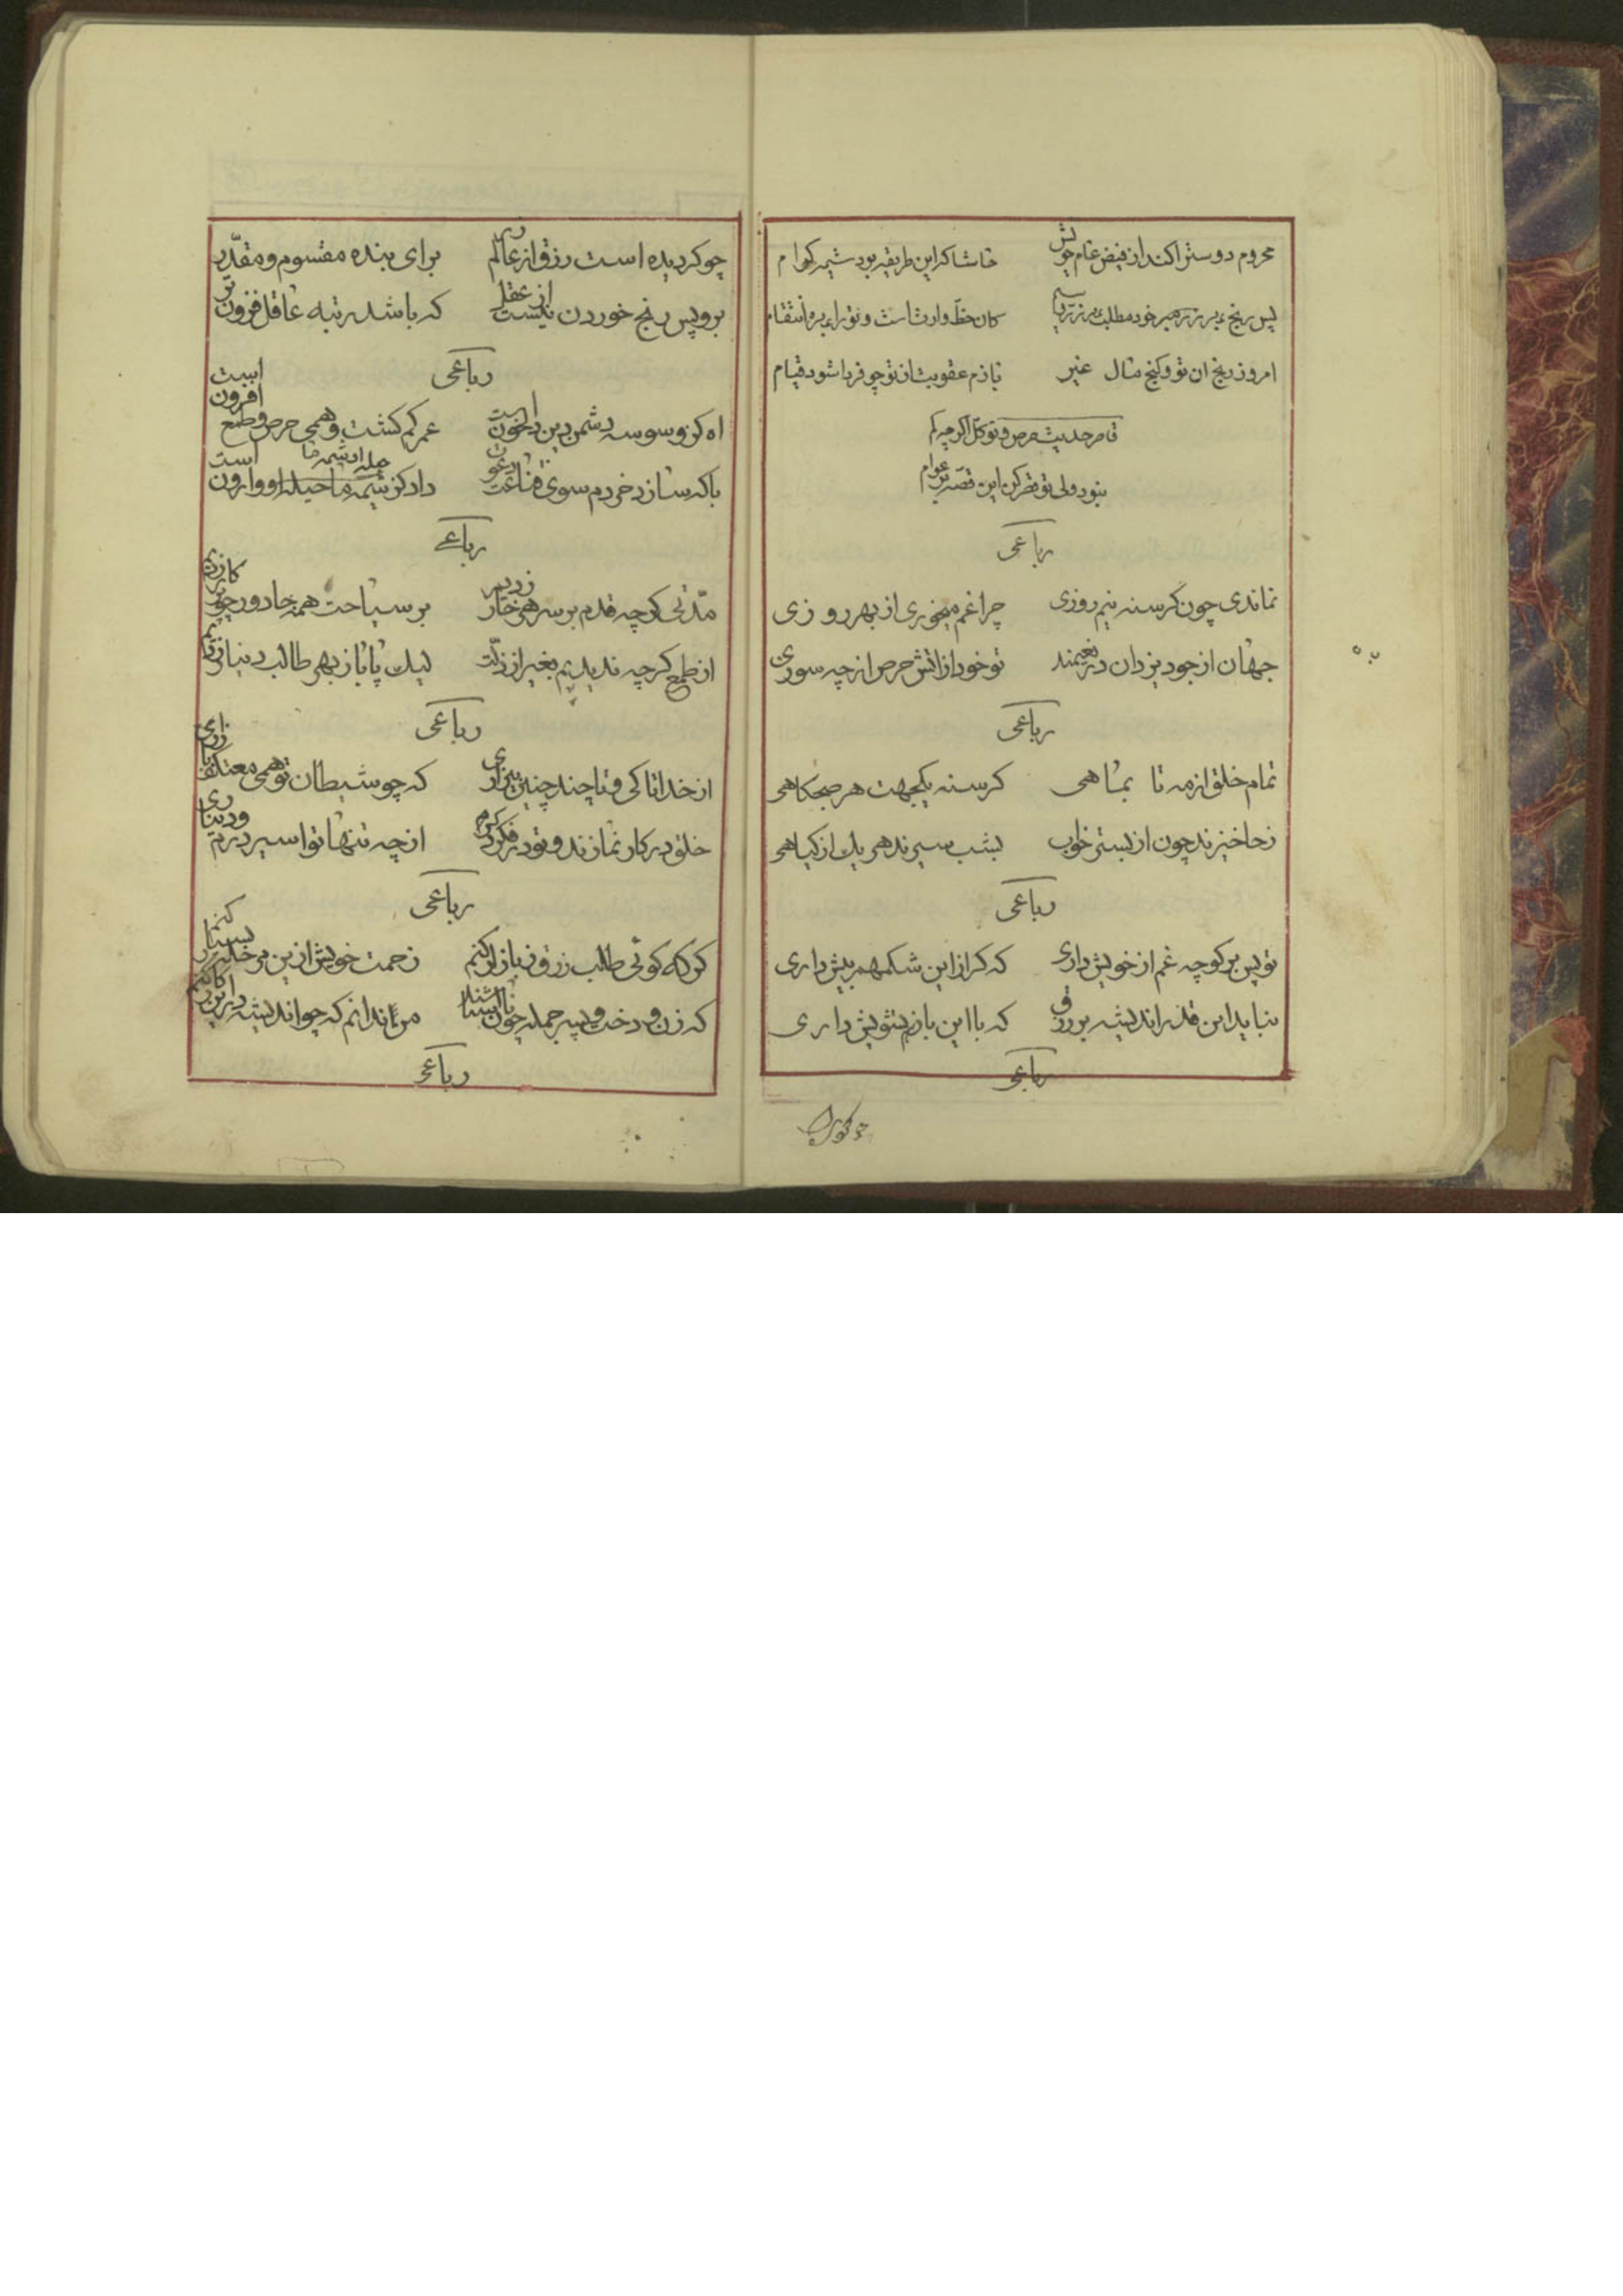 محروم دوستر اکند از فیض عام خویش حاشا که این طریقه بود شیمه کرام
پس رنج خود مطلب کان حظ وارث است و تو را بهره انتقام
امروز رنج ان تو و گنج مال غیر بازم عقوبت ان تو چو فردا شود قیام
قاصر حدیث حرص و توکل اگر چه کم
بنود ولی تو قصر کن این قصه بر عوام
رباعی
نماندی چون گرسنه نیم روزی چرا غم میخوری از بهر روزی
جهان از جود یزدان در نعیمند تو خود از اتش حرص از چه سوزی
رباعی
تمام خلق از مه تا بماهی گرسنه یکجهت هر صبحکاهی
زجا خیزند چون از بستر خواب بشب سیرند هر یك از کیاهی
رباعی
تو پس بر کو چه غم از خویش داری که کر از این شکمهم بیش داری
نباید این قدر اندیشه بر رزق که با این بازهم تشویش داری
رباعی
چو کردیده است رزق از عالم در برای بنده مقسوم و مقدّر
برو پس رنج خوردن نیست از عقل که باشد رتبه عاقل فزون تر
رباعی
اه کز وسوسه دشمن دین دل خون است عمر کم کشت و همی حرص و طمع افزون است
باکه سازد خردم سوی قناعت داد کز شیمه ما حیله او وارون است
حیله از شیمه ما
رباعی
مدّتی کر چه قدم بر سر هر خار زدیم بر سیاحت همه جا دور چو
از طمع کر چه ندیدیم بغیر از ذلّت لیك پا باز بهر طالب دنیا زدیم
رباعی
از خدا تا کی و تا چند چنین بیزاری که چو شیطان تو همی معتکف بازاری
خلق در کار نمازند و تو در فکر از چه تنها تو اسیر درم و دیناری
رباعی
کر که کوئی طلب رزق ز بازار کنم زحمت خویش ازین مرحله بسیار کنم
که زن و دخت و پسر جمله چون نالان باشند من ندانم که چو اندیشه درین کار کنم
رباعی